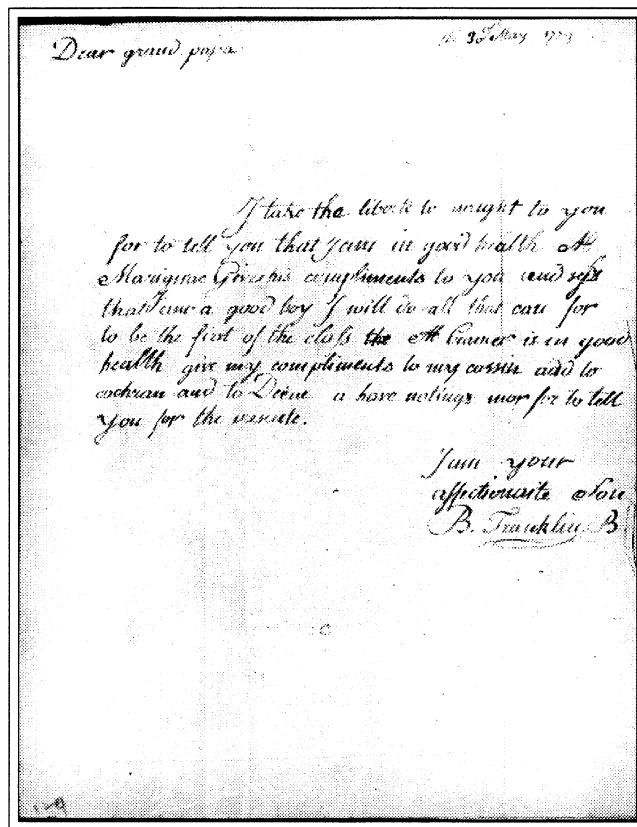 Dear grand papa
30 May 1779
I take the liberte to wright to you
for to tell you that I am in good health M
Marignac Gives his compliments to you and
that I am a good boy I will do all that can for
to be the first of the class the M Cramer is in good
health give my compliments to my cossin and to
cochran and to Deine a have notings mor for to tell
you for the
I am your
affectionaite Son
B. Franklin B.